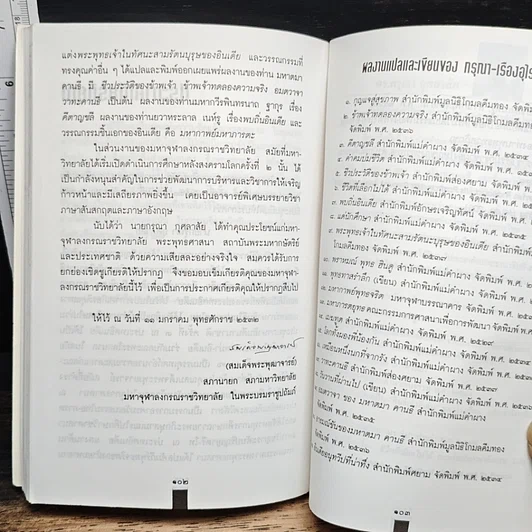 แต่งพระพุทธเจ้าในทัศนะสามรัตนบุรุษของอินเดีย และวรรณกรรมที่
ทรงคุณค่าอื่น ๆ ได้แปลและพิมพ์ออกเผยแพร่ผลงานของท่าน มหาตมา
คานธี มี ชีวประวัติของข้าพเจ้า ข้าพเจ้าทดลองความจริง อมตวาจา
วาทะคานธี เป็นต้น ผลงานของท่านมหากวีรพินทรนาถ ฐากูร เรื่อง
คีตาญชลี ผลงานของท่านยวาหระลาล เนห์รู เรื่องพบถิ่นอินเดีย และ
วรรณกรรมชิ้นเอกของอินเดีย คือ มหากาพย์มหาภารตะ
ในส่วนงานของมหาจุฬาลงกรณราชวิทยาลัย สมัยที่มหา
วิทยาลัยได้เริ่มเปิดดำเนินการศึกษาหลังสงครามโลกครั้งที่ ๒ นั้น ได้
เป็นกำลังหนุนสำคัญในการช่วยพัฒนาการบริหารและวิชาการให้เจริญ
ก้าวหน้าและมีเสถียรภาพยิ่งขึ้น เคยเป็นอาจารย์พิเศษบรรยายวิชา
ภาษาสันสกฤตและภาษาอังกฤษ
นับได้ว่า นายกรุณา กุศลาสัย ได้ทำคุณประโยชน์แก่มหา
จุฬาลงกรณราชวิทยาลัย พระพุทธศาสนา สถาบันพระมหากษัตริย์
และประเทศชาติ ด้วยความเสียสละอย่างจริงใจ สมควรได้รับการ
ยกย่องเชิดชูเกียรติให้ปรากฏ จึงขอมอบเข็มเกียรติคุณของมหาจุฬา
ลงกรณราชวิทยาลัยนี้ไว้ เพื่อเป็นการประกาศเกียรติคุณให้ปรากฏสืบไป
ให้ไว้ ณ วันที่ ๑๑ มกราคม พุทธศักราช ๒๕๓๒
(สมเด็จพระพุฒาจารย์)
สภานายก สภามหาวิทยาลัย
มหาจุฬาลงกรณราชวิทยาลัย ในพระบรมราชูปถัมภ์
๑๐๒
ผลงานแปลและเขียนของ กรุณา-เรืองอุไร
๑. กุญแจสู่สุขภาพ สำนักพิมพ์มูลนิธิโกมลคีมทอง จัดพิมพ์
๒. ข้าพเจ้าทดลองความจริง สำนักพิมพ์มูลนิธิโกมลคีมทอง
จัดพิมพ์ พ.ศ. ๒๕๓๖
๓. คีตาญชลี สำนักพิมพ์แม่คำผาง จัดพิมพ์ พ.ศ.
๔. ค่าคมแม่ชีวิต สำนักพิมพ์แม่คำผาง จัดพิมพ์ พ.ศ.
๕. ชีวประวัติของข้าพเจ้า สำนักพิมพ์ส่องสยาม จัดพิมพ์ พ.ศ.
๖. ชีวิตที่เลือกไม่ได้ สำนักพิมพ์แม่คำผาง จัดพิมพ์ พ.ศ.
๗. พบถิ่นอินเดีย สำนักพิมพ์อักษรเจริญทัศน์ จัดพิมพ์ พ.ศ.
๘. แด่นักศึกษา สำนักพิมพ์แม่คำผาง จัดพิมพ์ พ.ศ.
๙. พระพุทธเจ้าในทัศนะสามรัตนะบุรุษของอินเดีย สำนักพิมพ์
โกมลคีมทอง จัดพิมพ์ พ.ศ.
พราหมณ์ พุทธ ฮินดู สำนักพิมพ์แม่คำผาง จัดพิมพ์ พ.ศ.
พุทธทาสรำลึก (เขียน) สำนักพิมพ์แม่คำผาง จัดพิมพ์
มหากาพย์พุทธจริต มหาจุฬาบรรณาคาร จัดพิมพ์ พ.ศ.
มหาภารตยุทธ คณะกรรมการศาสนาเพื่อการพัฒนา จัดพิมพ์
เมฆทูต สำนักพิมพ์แม่คำผาง จัดพิมพ์ พ.ศ.
โลกทั้งผองพี่น้องกัน สำนักพิมพ์แม่คำผาง จัดพิมพ์ พ.ศ.
เหมือนหนึ่งนกที่จากรัง สำนักพิมพ์แม่คำผาง จัดพิมพ์
วาทะคานธี สำนักพิมพ์ส่องสยาม จัดพิมพ์ พ.ศ.
วันวานที่ผ่านไป (เขียน) สำนักพิมพ์แม่คำผาง จัดพิมพ์ พ.ศ.
อมตวาจา ของ มหาตมา คานธี สำนักพิมพ์แม่คำผาง
จัดพิมพ์ พ.ศ.
ของมหาตมา คานธี สำนักพิมพ์มูลนิธิโกมลคีมทอง
พิมพ์ พ.ศ. ๒๕๓๖
อินเดียอนุทวีปที่น่าทึ่ง สำนักพิมพ์ศยาม จัดพิมพ์ พ.ศ.
๑๐๓